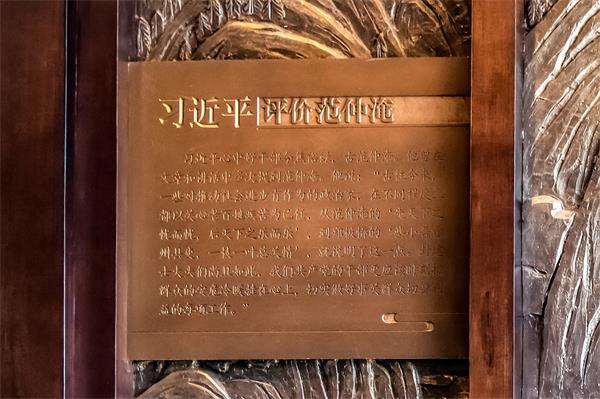 习近平 评价范仲淹
习近平心中好干部
文章和讲话中多次提到范仲淹。他说：“古往今来，
一些对推动社会进步有作为的政治家，在不同程度上
都以关心老百姓疾苦为己任，从范仲淹的‘先天下之
忧而忧，后天下之乐而乐’，到郑板桥的‘些小吾曹
州县吏，一枝一叶总关情’，就说明了这一点。封建
士大夫们尚且如此，我们共产党的干部更应该时刻把
群众的安危冷暖挂在心上，切实做好事关群众切身利
益的每项工作。”